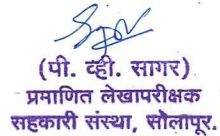 (पी. व्ही. सागर)
प्रमाणित लेखापरीक्षक
सहकारी संस्था, सोलापूर.